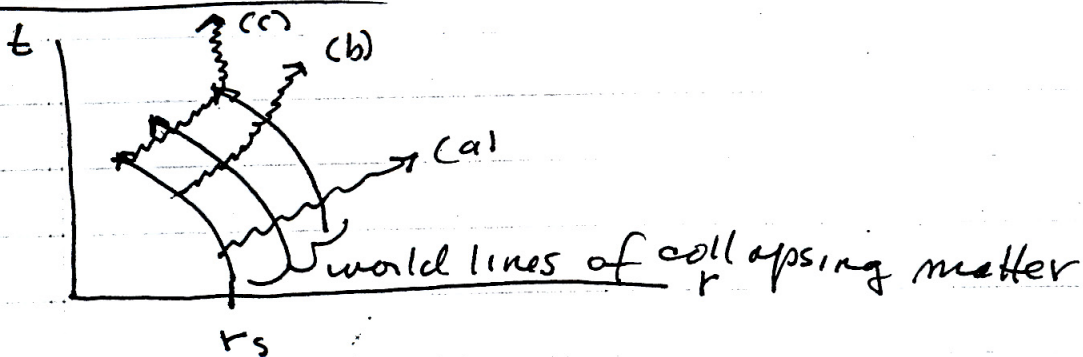 t
(c)
(b)
(a)
world lines of collapsing matter
r
rs